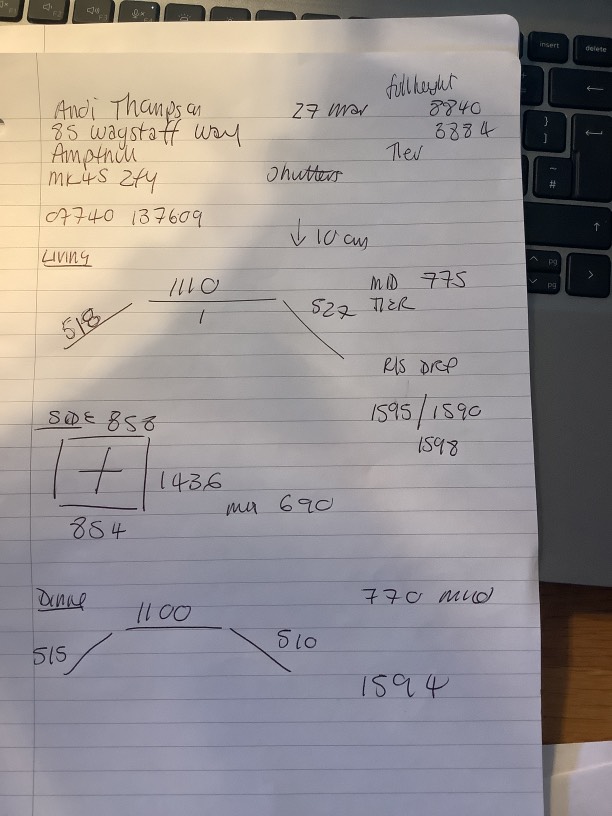 Andi Thompson
85 Wagstaff way
Ampthill
MK45 2fy
07740 137609
27 Mar
full height
8840
3384
Tier
shutters
↓ 10 cm
Living
1110
518
1
527
MID 775
TIER
R/S DROP
1595/1590
1598
SIDE 858
1436
854
690
Dining
1100
515
510
770 mid
1594
insert
delete
pg
pg